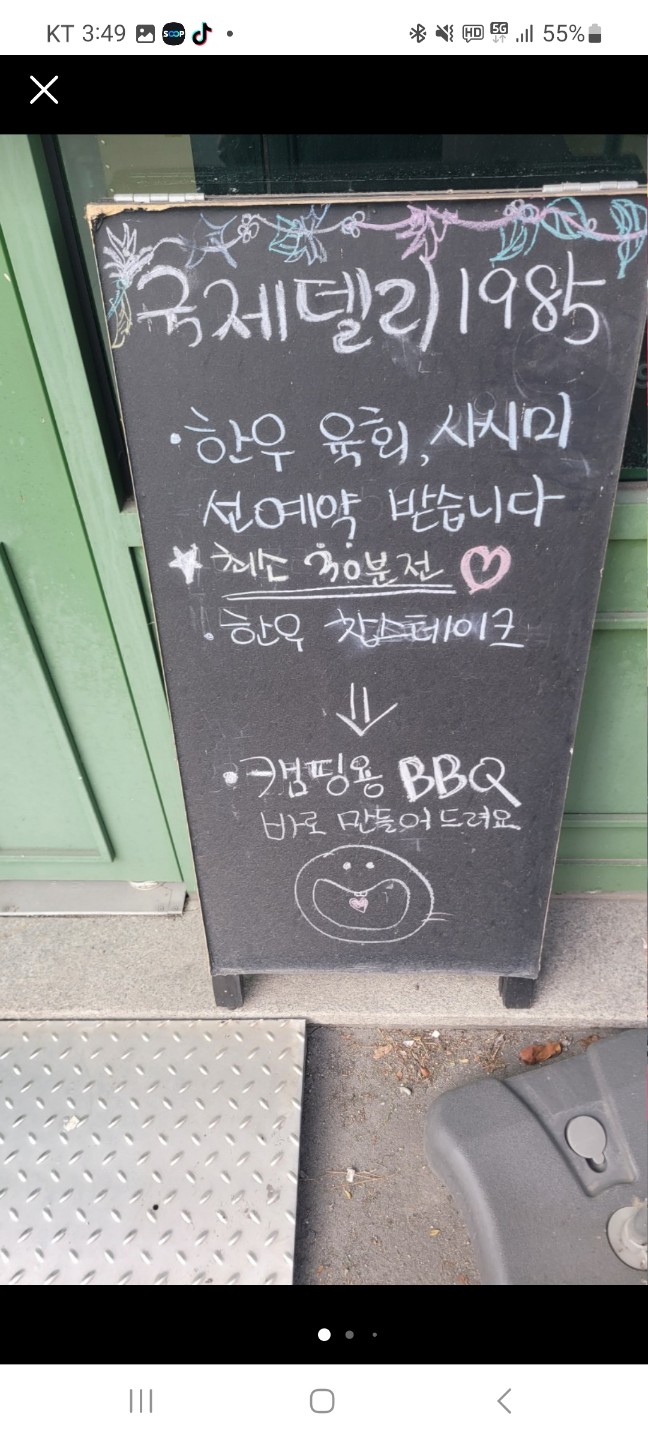 KT 3:49
HD 5G 55%
국제델리 1985
· 한우 육회, 사시미
선예약 받습니다
★ 최소 30분전 ♡
· 한우 찹스테이크
⇓
· 캠핑용 BBQ
바로 만들어 드려요